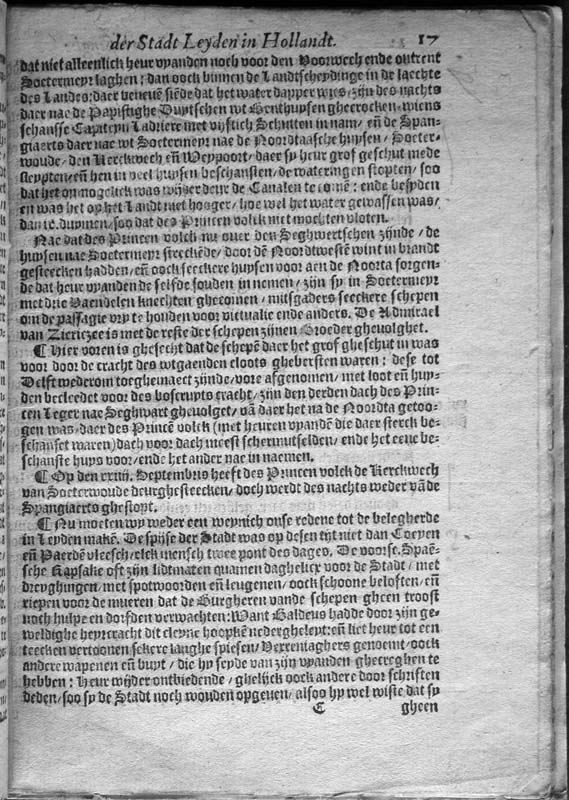 der Stadt Leyden in Hollandt. 17
dat niet alleenlick heur vyanden noch voor den Voorwech ende outrent
Soetermeyr laghen: dan oock binnen de Landtscheydinge in de laechte
des Landes: daer beneuē siēde dat het water dapper wies, zijn des nachts
daer nae de Papistighe Duytschen wt Benthuysen gheerocken, wiens
schansse Capiteyn Ladriere met vijftich Schutten in nam, eñ de Span-
giaerts daer nae wt Soetermeyr nae de Noordtaasche huysen, Soeter-
woude, den Kerckwech eñ Weypoort, daer sy heur grof geschut mede
sleypten, eñ hen in veel huysen beschansten, de wateringen stopten, soo
dat het onmogelick was wijder deur de Canalen te comē: ende besyden
en was het op het Landt niet hooger, hoe wel het water gewassen was,
dan ix. duymen, soo dat des Princen volck niet mochten vloten.
Nae dat des Princen volck nu ouer den Seghwertschen zijnde, de
huysen nae Soetermeyr streckēde, door dē Noordtwestē wint in brandt
gesteecken hadden, eñ oock seeckere huysen voor aen de Noorta sorgen-
de dat heur vyanden de selfde souden in nemen, zijn sy in Soetermeyr
met drie Vaendelen knechten ghecomen, mitsgaders seeckere schepen
om de passagie vry te houden voor victualie ende anders. De Admirael
van Ziericzee is met de reste der schepen zijnen Broeder gheuolghet.
¶ Hier voren is gheseyt dat de schepē daer het grof gheschut in was
voor door de cracht des wtgaenden cloots ghebersten waren: dese tot
Delft wederom toeghemaect zijnde, vore afgenomen, met loot eñ huy-
den becleedet voor des boscruyts cracht, zijn den derden dach des Prin-
cen Leger nae Seghwart gheuolget, vā daer het na de Noordta getoo-
gen was, daer des Princē volck (met heuren vyandē die daer sterck be-
schanset waren) dach voor dach meest schermutselden, ende het eene be-
schanste huys voor, ende het ander nae in naemen.
¶ Op den xxiij. Septembris heeft des Princen volck de Kerckwech
van Soeterwoude deurghesteecken, doch werdt des nachts weder vāde
Spangiaerts ghestopt.
¶ Nu moeten wy weder een weynich onse redene tot de belegherde
in Leyden makē. De spijse der Stadt was op desen tijt niet dan Coeyen
eñ Paerdē vleesch, elck mensch twee pont des dages. De voorse. Spaē-
sche Kapsake oft zijn lidtmaten quamen daghelicx voor de Stadt, met
dreyghingen, met spotwoorden eñ leugenen, oock schoone beloften, eñ
riepen voor de mueren dat de Burgheren vande schepen gheen troost
noch hulpe en dorfden verwachten: Want Baldeus hadde door zijn ge-
weldighe heyrcracht dit cleyne hoopkē nederghelept: eñ liet heur tot een
teecken vertoonen sekere langhe spiesen, Verreniaghers genoemt, oock
andere wapenen eñ buyt, die hy seyde van zijn vyanden ghecreghen te
hebben: Heur wijder ontbiedende, ghelijck oock andere door schriften
deden, soo sy de Stadt noch wouden opgeuen, alsoo hy wel wiste dat sy
C gheen